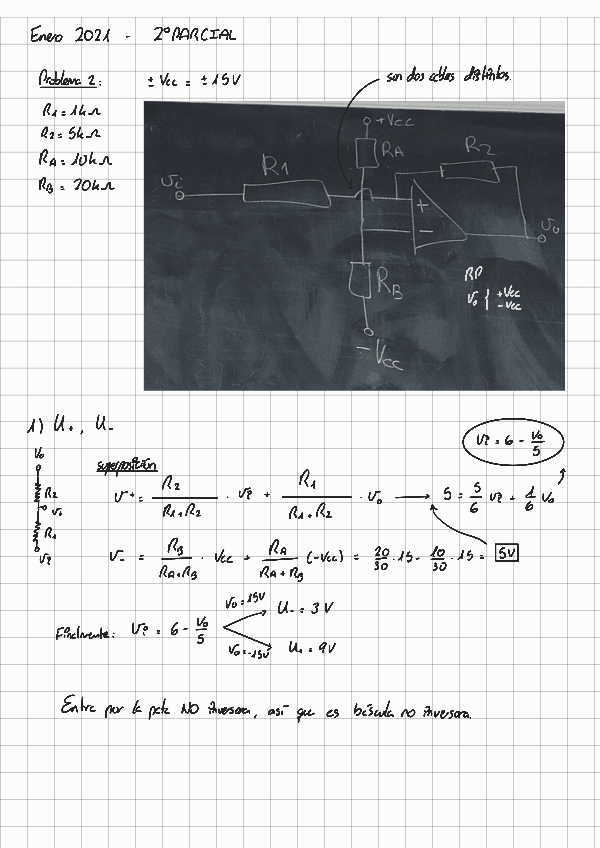 Enero 2021 - 2º PARCIAL
Problema 2: ± Vcc = ± 15V
son dos cables distintos.
R1 = 1kΩ
R2 = 5kΩ
RA = 10kΩ
RB = 20kΩ
+Vcc
RA
R2
R1
Vi
+
-
Vo
RB
RP
Vo { +Vcc
-Vcc
-Vcc
1) U+, U-
Vi = 6 - Vo/5
Vo
R2
R1
superposición
V+ = R2/(R1+R2) · Vi + R1/(R1+R2) · Vo → 5 = 5/6 Vi + 1/6 Vo
V- = RB/(RA+RB) · Vcc + RA/(RA+RB) (-Vcc) = 20/30 · 15 - 10/30 · 15 = 5V
Finalmente: Vi = 6 - Vo/5
Vo = 15V U- = 3V
Vo = -15V U+ = 9V
Entra por la pata NO inversora, así que es báscula no inversora.